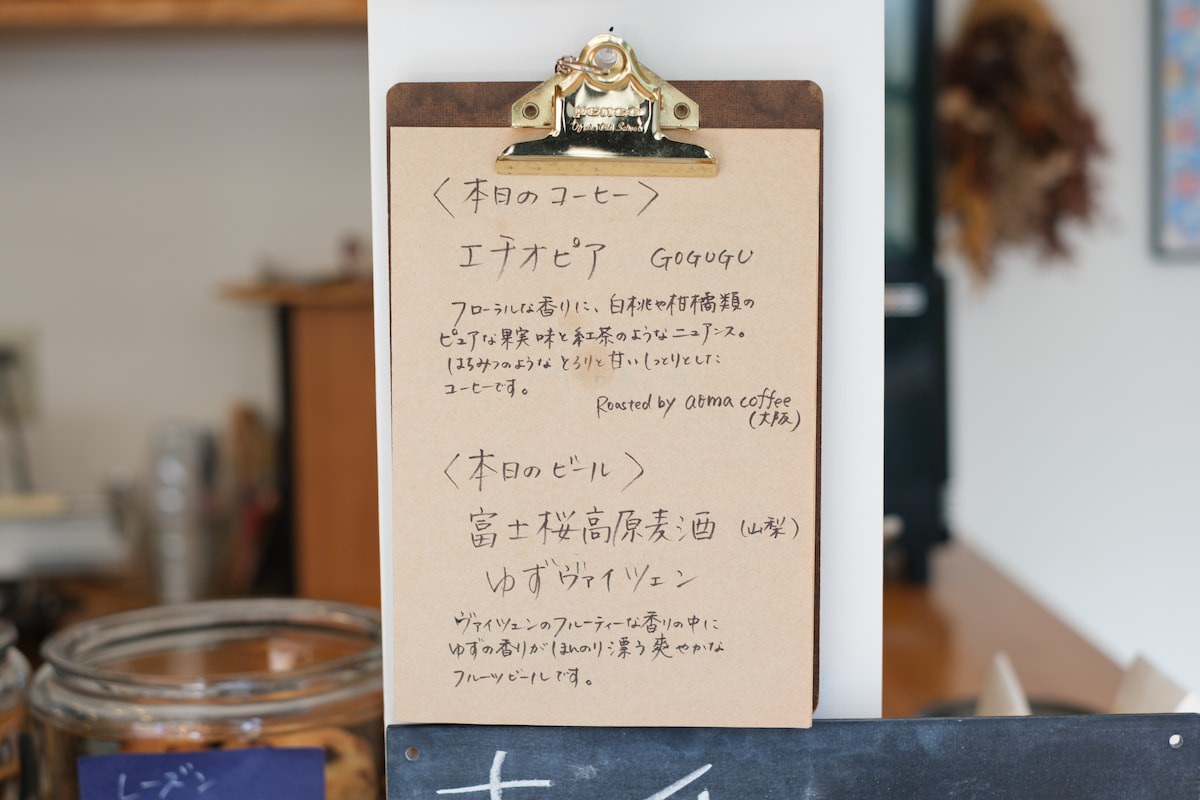 penco
〈本日のコーヒー〉
エチオピア GOGUGU
フローラルな香りに、白桃や柑橘類の
ピュアな果実味と紅茶のようなニュアンス。
はちみつのようなとろりと甘いしっとりとした
コーヒーです。
Roasted by atma coffee
(大阪)
〈本日のビール〉
富士桜高原麦酒 (山梨)
ゆずヴァイツェン
ヴァイツェンのフルーティーな香りの中に
ゆずの香りがほんのり漂う爽やかな
フルーツビールです。
レーズン